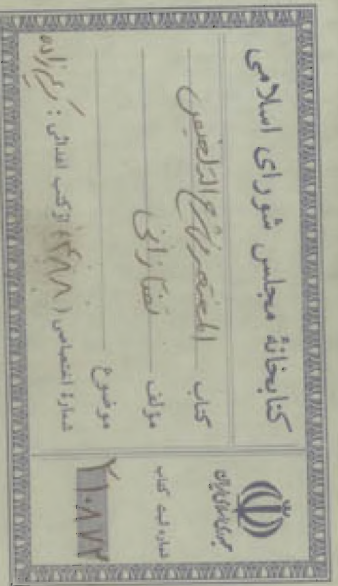 کتابخانهٔ مجلس شورای اسلامی
کتاب المختصر فی شرح التلخیص
مؤلف تفتازانی
موضوع
شمارهٔ اختصاصی (۳۸۸) از کتب اهدائی: کریم‌زاده
جمهوری اسلامی ایران
شماره ثبت کتاب
۲۱۰۸۷۲